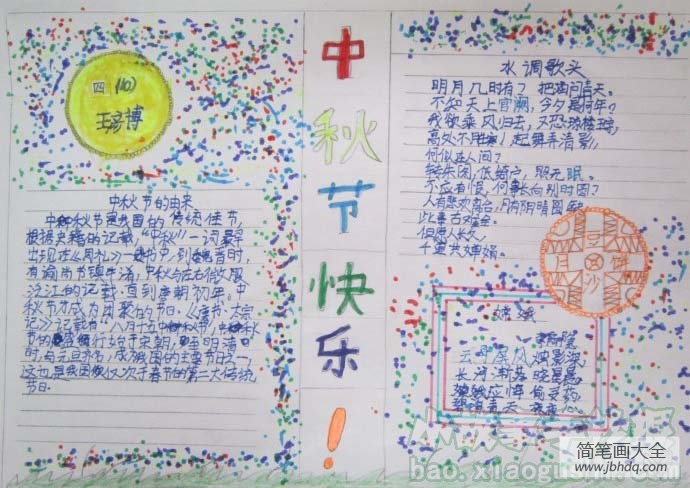 四(10)
王彦博
中秋节的由来
中秋节是我国的传统佳节,
根据史籍的记载,"中秋"一词最早
出现在《周礼》一书中,到魏晋时,
有谕尚书镇牛渚,中秋与左右微服
泛江的记载,直到唐朝初年,中
秋节才成为固定的节日。《唐书·太宗
记》记载有"八月十五中秋节",中秋
节的盛行始于宋朝,至明清
时,与元旦齐名,成为我国的主要节日之一,
这也是我国仅次于春节的第二大传统
节日。
中秋节快乐!
水调歌头
明月几时有?把酒问青天。
不知天上宫阙,今夕是何年?
我欲乘风归去,又恐琼楼玉宇,
高处不胜寒,起舞弄清影,
何似在人间?
转朱阁,低绮户,照无眠。
不应有恨,何事长向别时圆?
人有悲欢离合,月有阴晴圆缺,
此事古难全。
但愿人长久,
千里共婵娟。
月
饼
沙
嫦娥
云母屏风烛影深,
长河渐落晓星
嫦娥应悔偷灵药
碧海青天夜夜心
bao.xiaogushi.com
简笔画大全
www.jbhdq.com